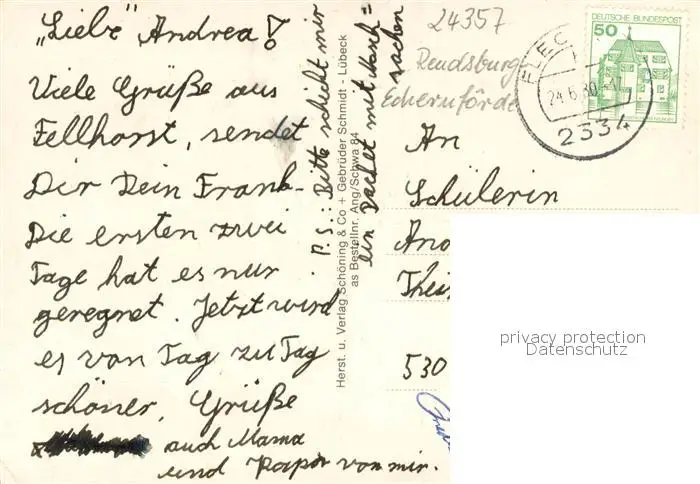 „Liebe" Andrea!
Viele Grüße aus
Fellhorst, sendet
Dir Dein Frank.
Die ersten zwei
Tage hat es nur
geregnet. Jetzt wird
es von Tag zu Tag
schöner. Grüße
auch Mama
und Papa von mir.
P.S.: Bitte schickt mir
ein Pachet mit Nasch=
sachen
Herst. u. Verlag Schöning & Co + Gebrüder Schmidt - Lübeck
as Bestellnr. Ang/Schwa 84
24357
Rendsburg-
Eckernförde
FLEC
24.6.80
2334
DEUTSCHE BUNDESPOST
50
An
Schülerin
530
privacy protection
Datenschutz